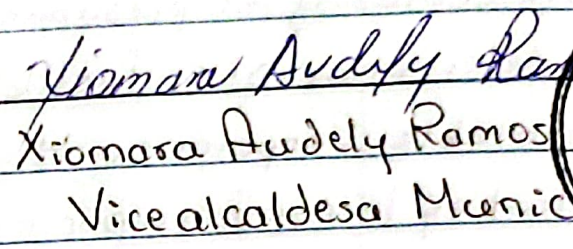 Xiomara Audely Ram
Xiomara Audely Ramos
Vicealcaldesa Munic